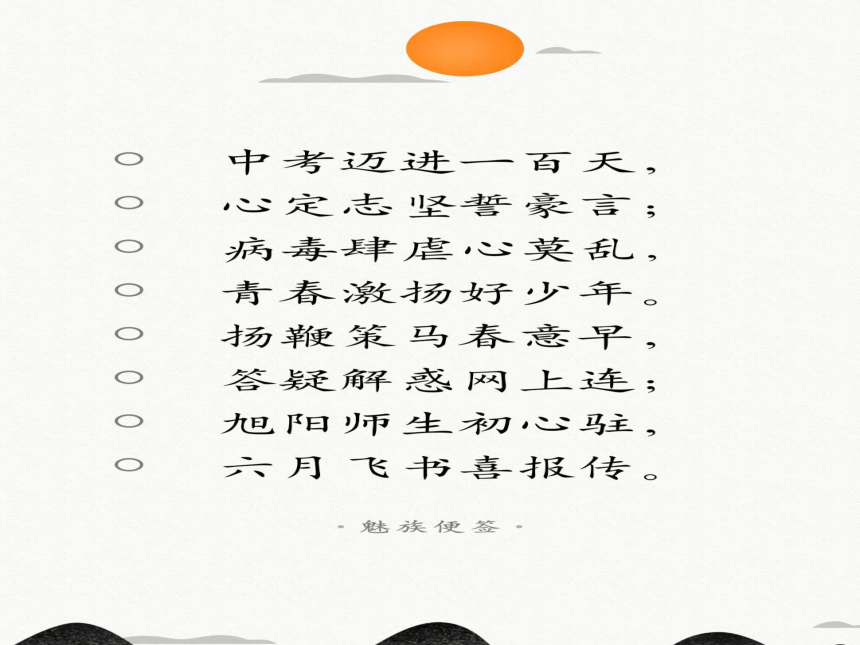 中考迈进一百天，
心定志坚誓豪言；
病毒肆虐心莫乱，
青春激扬好少年。
扬鞭策马春意早，
答疑解惑网上连；
旭阳师生初心驻，
六月飞书喜报传。
·魅族便签·